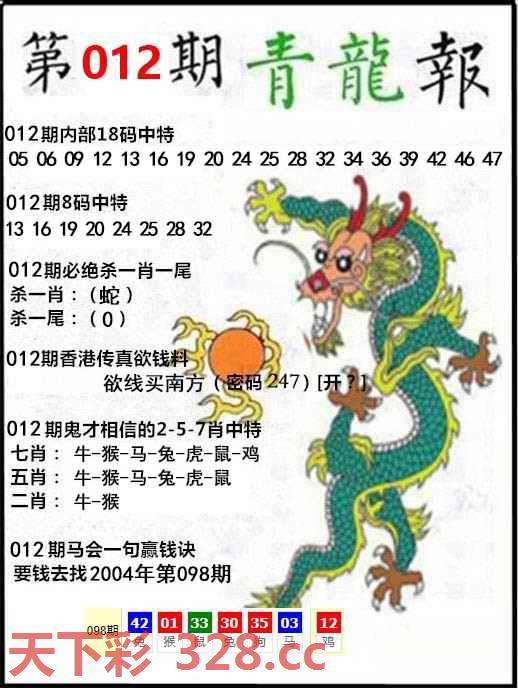 第012期 青龍報
012期内部18码中特
05 06 09 12 13 16 19 20 24 25 28 32 34 36 39 42 46 47
012期8码中特
13 16 19 20 24 25 28 32
012期必绝杀一肖一尾
杀一肖：（蛇）
杀一尾：（0）
012期香港传真欲钱料
欲线买南方（密码247）[开？]
012期鬼才相信的2-5-7肖中特
七肖：牛-猴-马-兔-虎-鼠-鸡
五肖：牛-猴-马-兔-虎-鼠
二肖：牛-猴
012期马会一句赢钱诀
要钱去找2004年第098期
098期 42 01 33 30 35 03 12
兔 猴 鼠 兔 狗 马 鸡
天下彩 328.cc